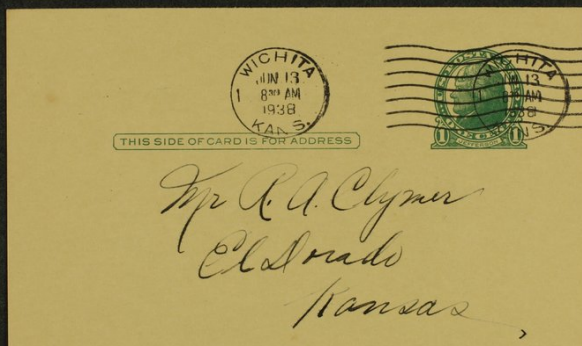 WICHITA
JUN 13
8 30 AM
1938
KANS.
1
WICHITA
13
AM
THIS SIDE OF CARD IS FOR ADDRESS
1 JEFFERSON 1
Mr R. A. Clymer
El Dorado
Kansas